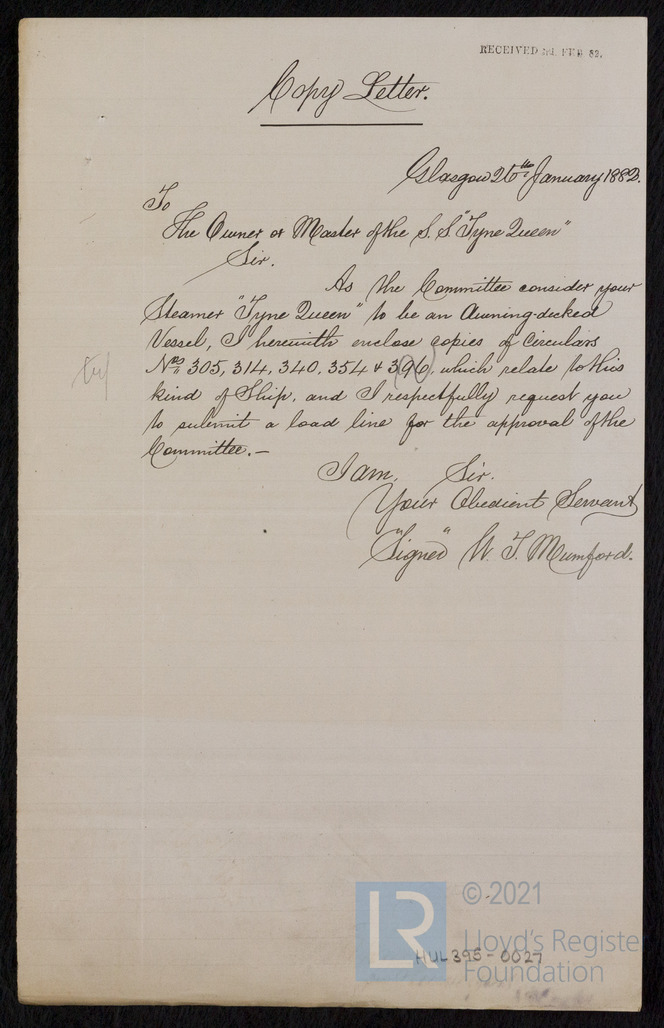 RECEIVED FEB 82.
Copy Letter.
Glasgow 26th January 1882.
To
The Owner or Master of the S.S. "Tyne Queen"
Sir.
As the Committee consider your
Steamer "Tyne Queen" to be an Awning-decked
Vessel, I herewith enclose copies of Circulars
Nos 305, 314, 340, 354 & 396, which relate to this
kind of Ship, and I respectfully request you
to submit a load line for the approval of the
Committee.—
I am, Sir.
Your Obedient Servant
"Signed" W. T. Mumford.
LR
© 2021
Lloyd's Registe
Foundation
HUL395-0027